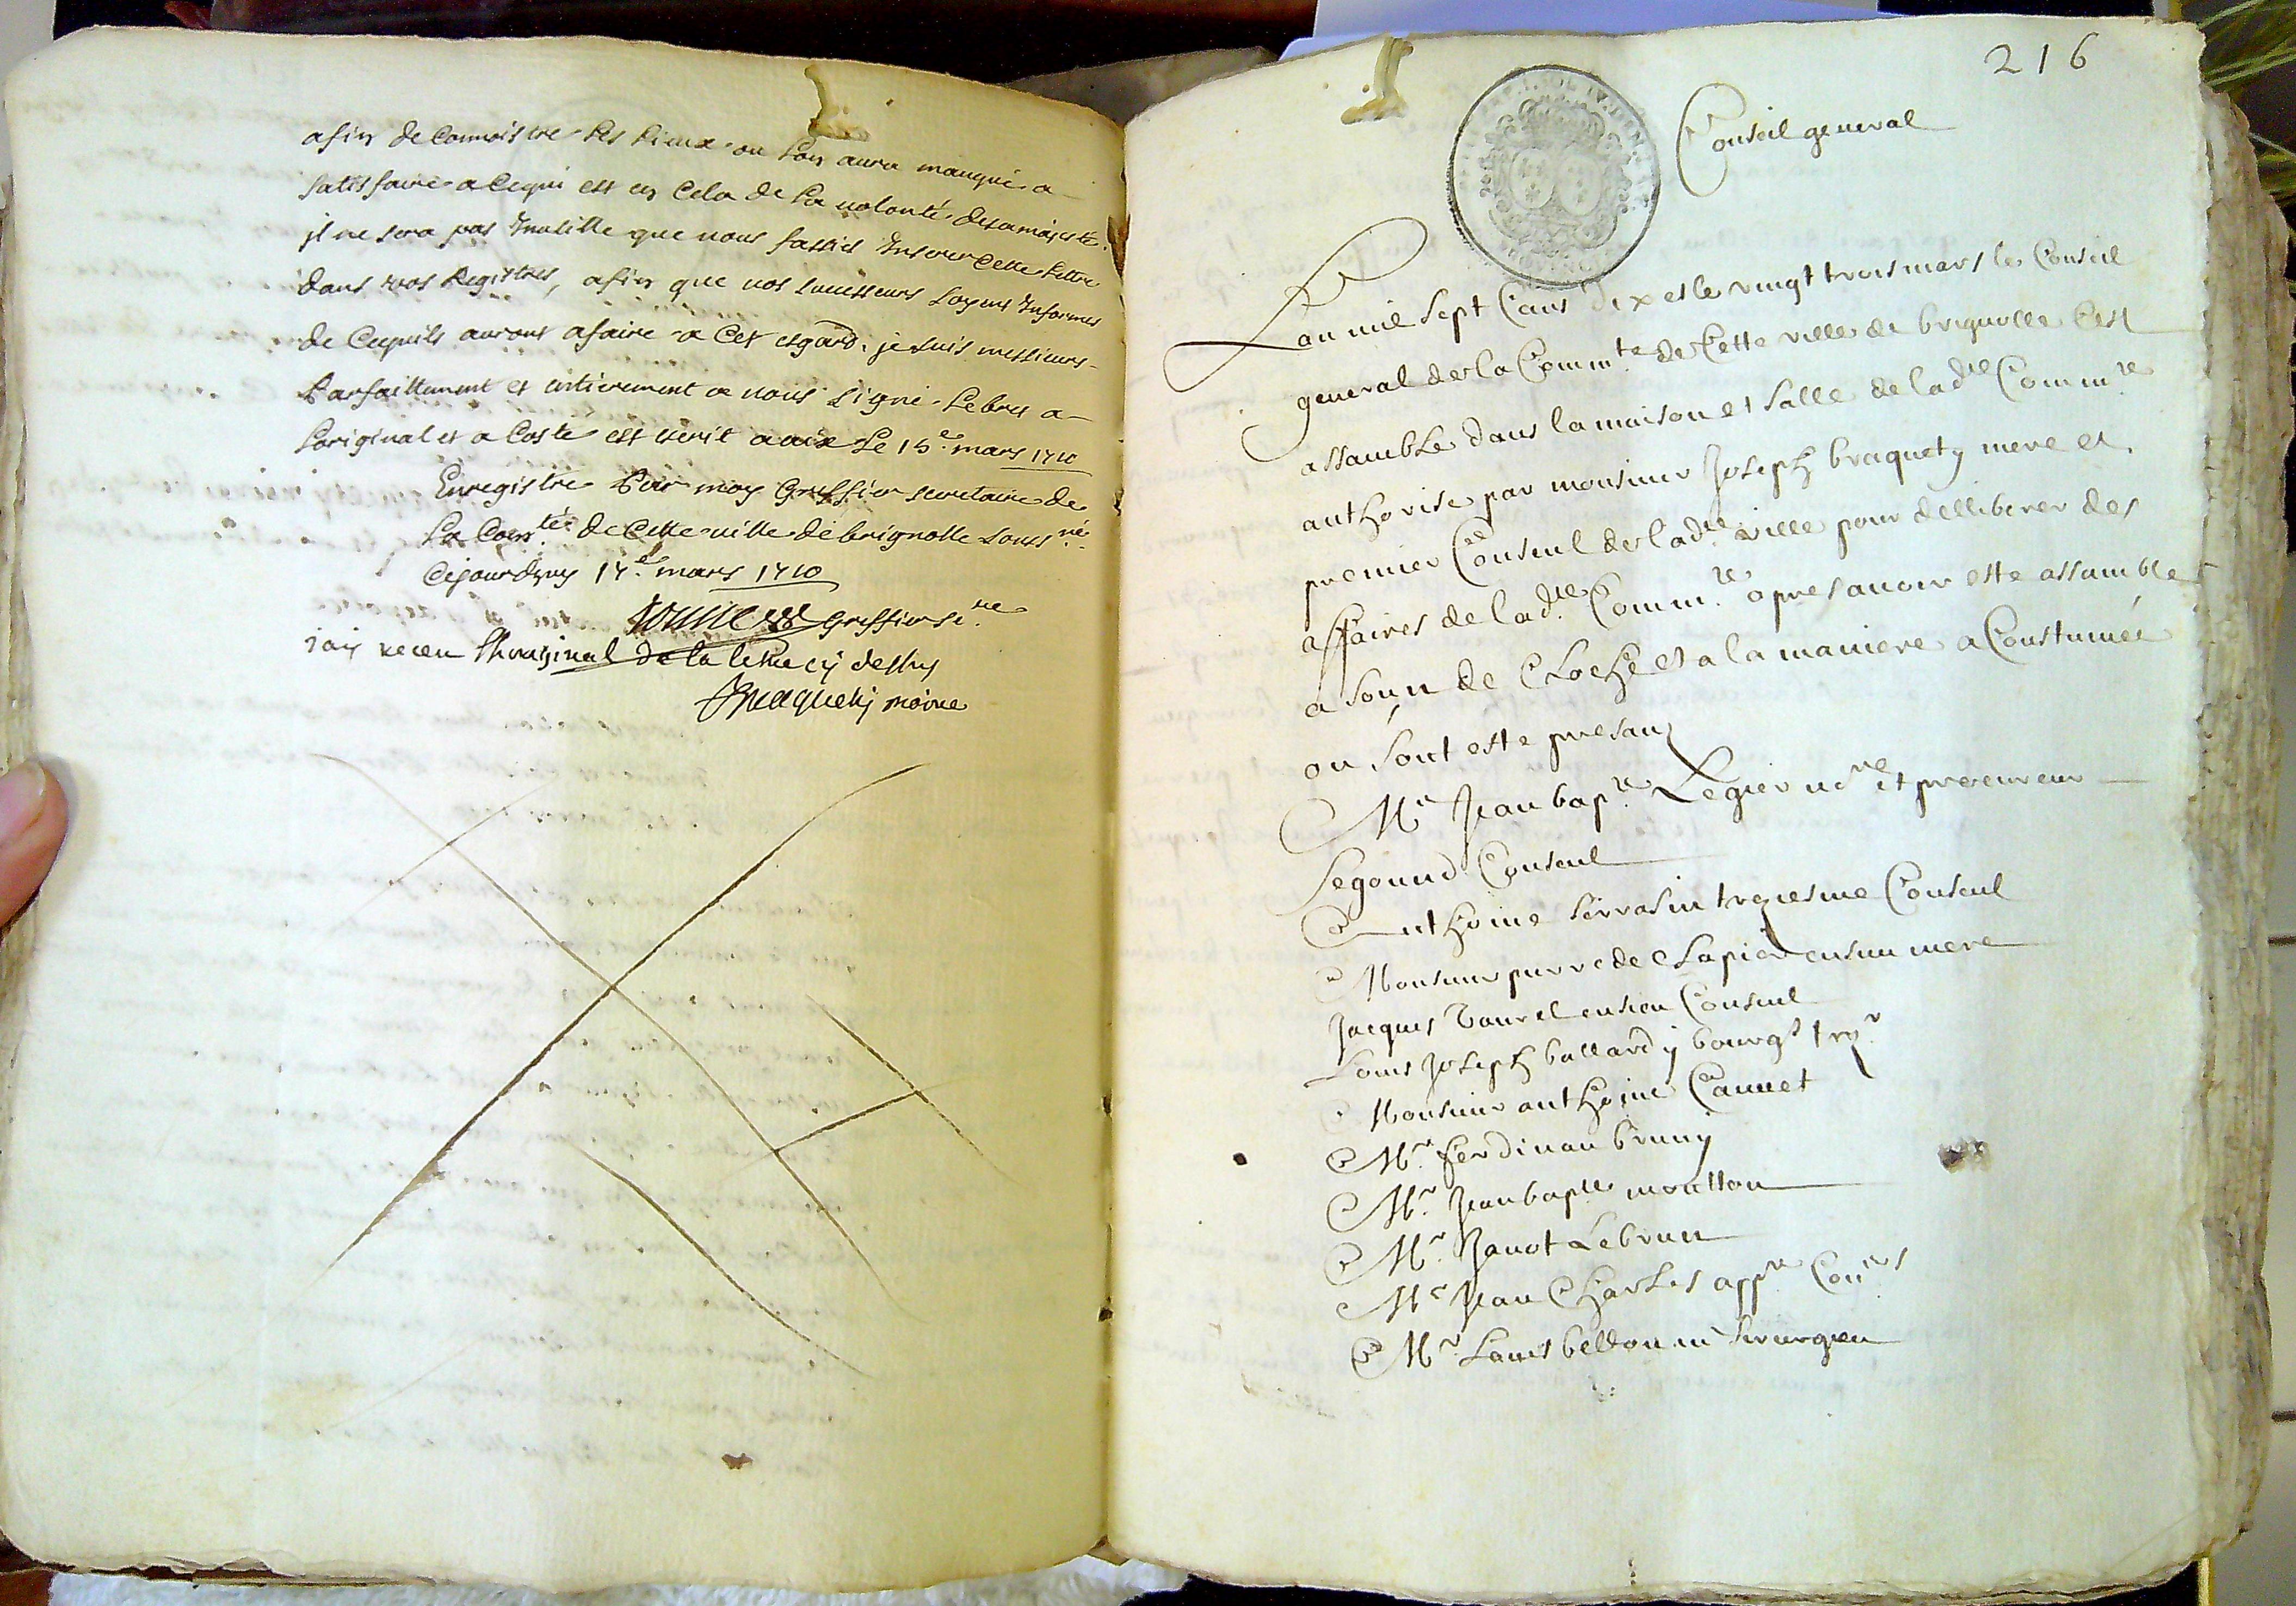 afin de Connoistre Les Lieux ou Lon aura manqué a
satisfaire a Cequi est en Cela de La volonté desamajesté.
jl ne sera pas Inutille que vous fassies Inserer Cette Lettre
dans vos Registres, afin que vos successeurs soyent Informes
de Cequils auront afaire a Cet esgard. je suis messieurs
Parfaittement et entierement a vous signé Lebret a
Loriginal et a Coste est escrit a aix Le 15e mars 1710
Enregistré Par moy Greffier secretaire de
La Comté de Cette ville de brignolle soussné
Cejourdhuy 17e mars 1710
Greffier sere
jay receu Lhoriginal de la lettre cy dessus
Braquety maire
216
Conseil general
Lan mil sept Cans dix et le vingt trois mars le Conseil
general de la Commte de Cette ville de brignolle Cest
assamble dans la maison et salle de ladte Commte
authorise par monsieur Joseph braquety mere et
premier Conseul de ladte ville pour delliberer des
affaires de ladte Commte apres avoir este assamble
a sounn de Cloche et a la maniere a Coustumée
ou sont este presans
Me Jean bapte Legier nore et precureur
segound Conseul
Anthoine sarrasin troziesme Conseul
Monsieur pierre de Clapier ensien mere
Jacques Taurel ensien Conseul
Louis Joseph ballardy bourgs trezr
Monsieur anthoine Cannet
Mr ferdinan bruny
Mr Jean bapte moutton
Mr Janot Lebrun
Me Jean Charles appre
Mr Louis bellon me sirurgien